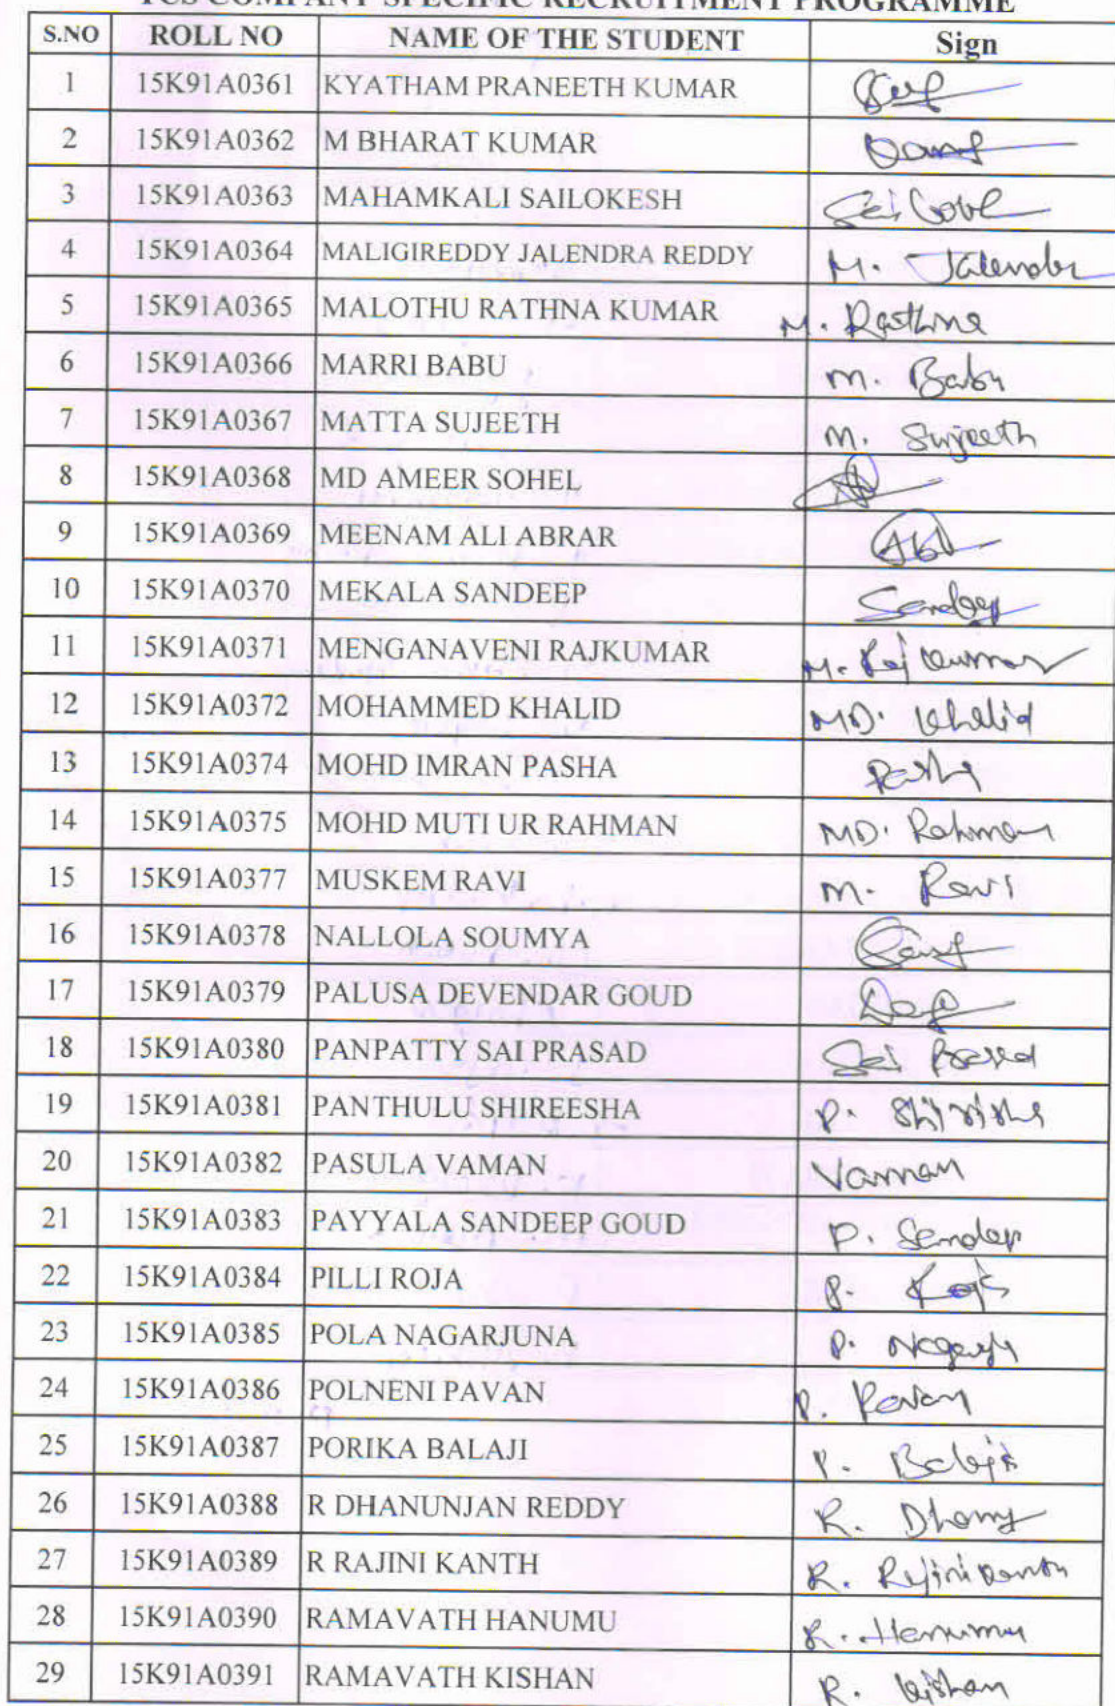 TCS COMPANY SPECIFIC RECRUITMENT PROGRAMME
S.NO ROLL NO NAME OF THE STUDENT Sign
1 15K91A0361 KYATHAM PRANEETH KUMAR
2 15K91A0362 M BHARAT KUMAR
3 15K91A0363 MAHAMKALI SAILOKESH
4 15K91A0364 MALIGIREDDY JALENDRA REDDY M. Jalender
5 15K91A0365 MALOTHU RATHNA KUMAR M. Rathna
6 15K91A0366 MARRI BABU M. Babu
7 15K91A0367 MATTA SUJEETH M. Sujeeth
8 15K91A0368 MD AMEER SOHEL
9 15K91A0369 MEENAM ALI ABRAR
10 15K91A0370 MEKALA SANDEEP Sandeep
11 15K91A0371 MENGANAVENI RAJKUMAR M. Raj kumar
12 15K91A0372 MOHAMMED KHALID MD. Khalid
13 15K91A0374 MOHD IMRAN PASHA Pasha
14 15K91A0375 MOHD MUTI UR RAHMAN MD. Rahman
15 15K91A0377 MUSKEM RAVI M. Ravi
16 15K91A0378 NALLOLA SOUMYA
17 15K91A0379 PALUSA DEVENDAR GOUD
18 15K91A0380 PANPATTY SAI PRASAD Sai Prasad
19 15K91A0381 PANTHULU SHIREESHA P. Shirisha
20 15K91A0382 PASULA VAMAN Vaman
21 15K91A0383 PAYYALA SANDEEP GOUD P. Sandeep
22 15K91A0384 PILLI ROJA P. Roja
23 15K91A0385 POLA NAGARJUNA P.
24 15K91A0386 POLNENI PAVAN P. Pavan
25 15K91A0387 PORIKA BALAJI P. Balaji
26 15K91A0388 R DHANUNJAN REDDY R. Dhanu
27 15K91A0389 R RAJINI KANTH R. Rajinikanth
28 15K91A0390 RAMAVATH HANUMU R. Hanumu
29 15K91A0391 RAMAVATH KISHAN R. kishan